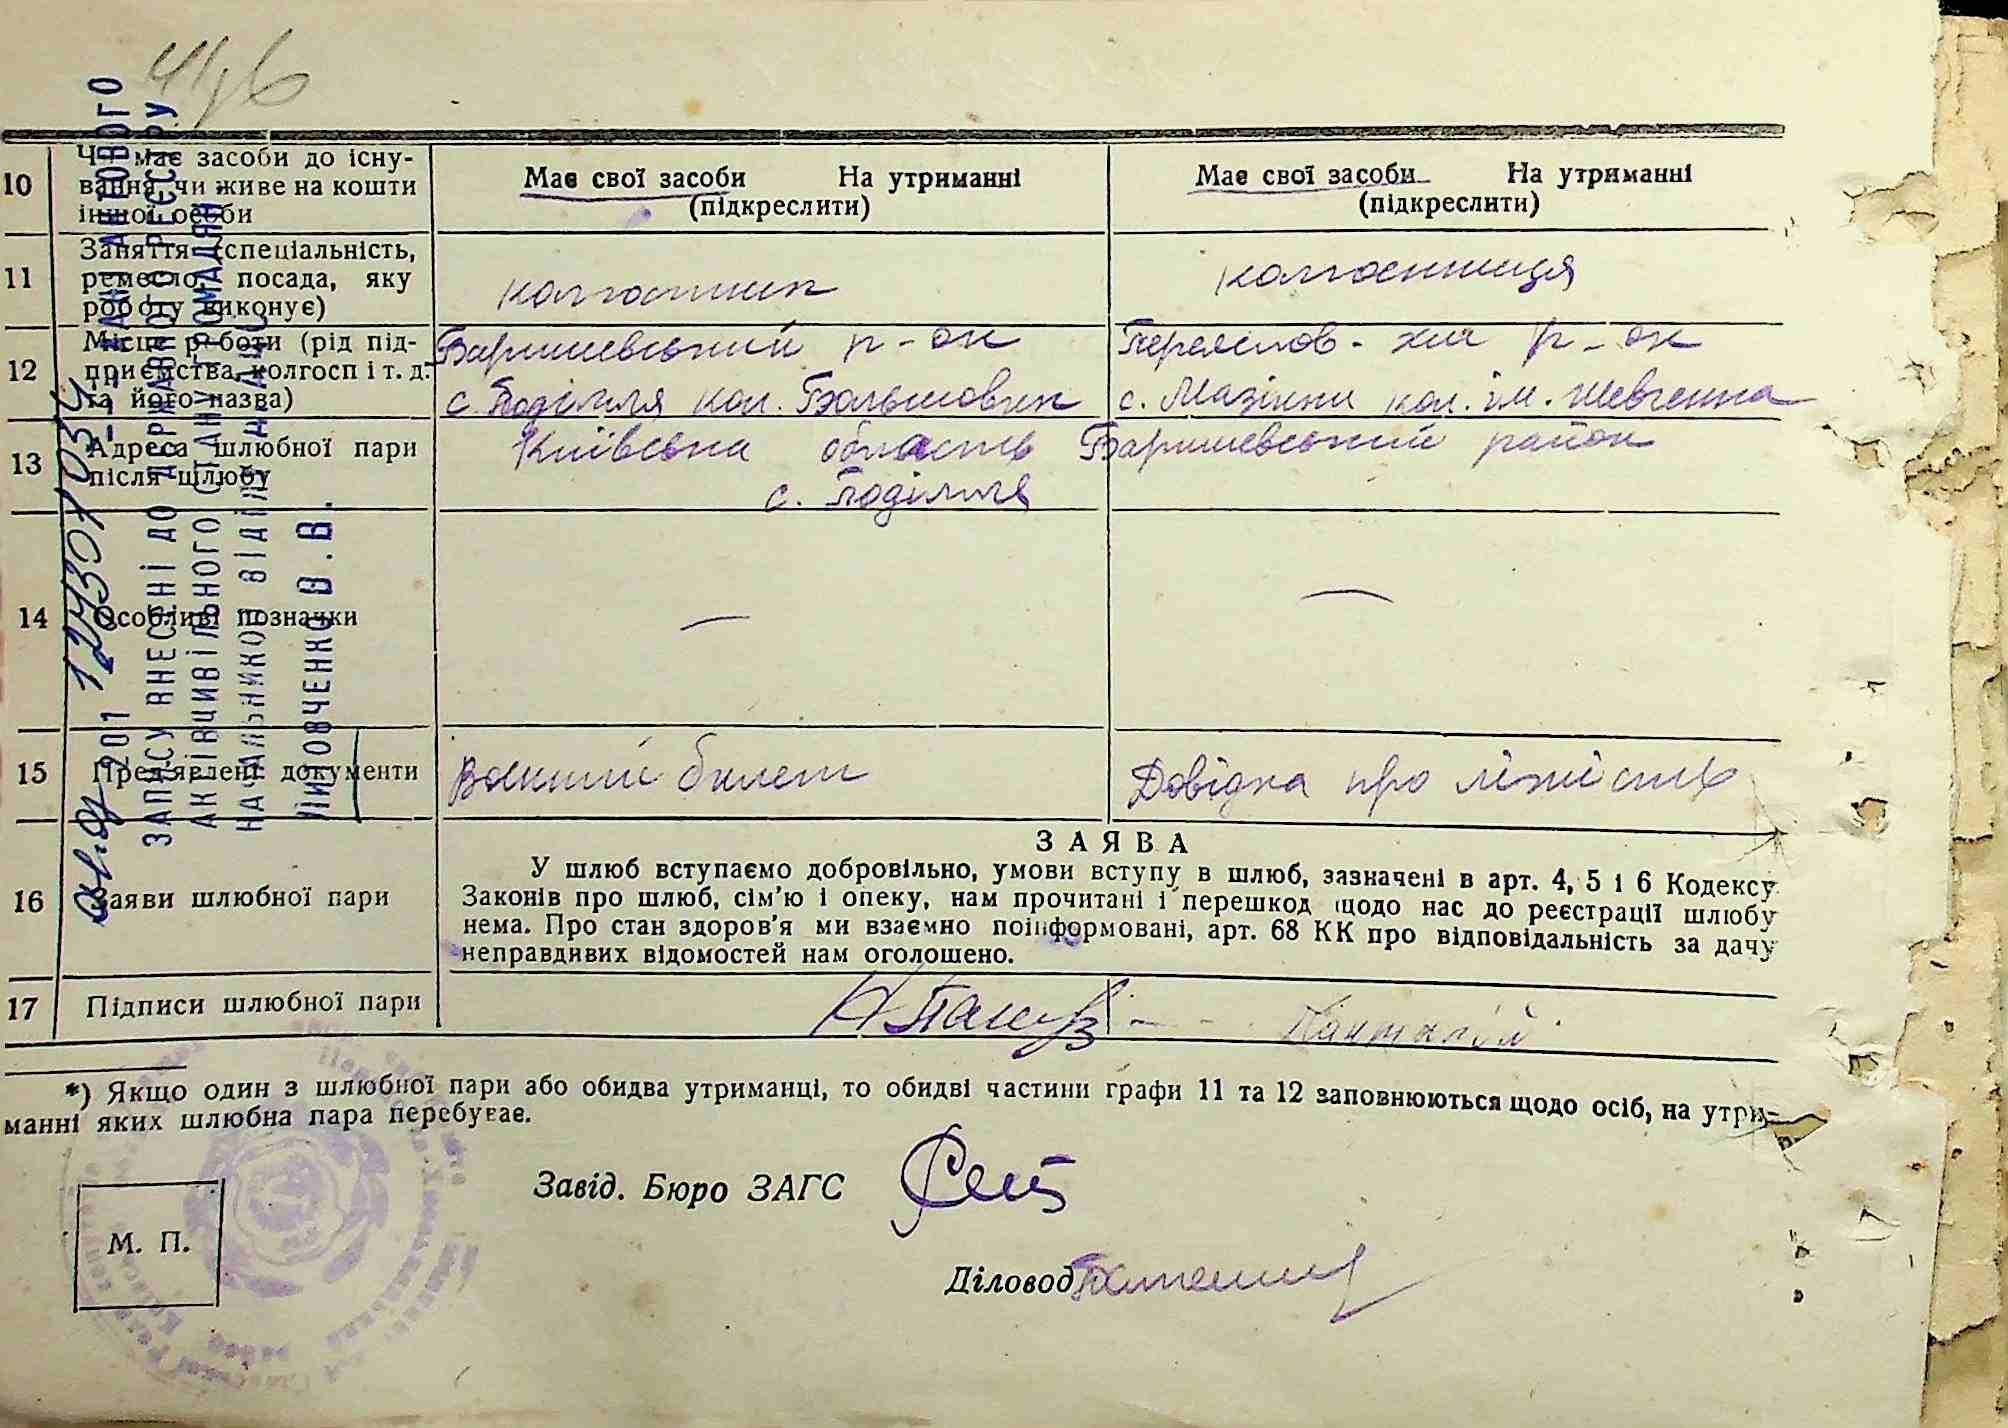 10 Чи має засоби до існу-
вання, чи живе на кошти
іншої особи
Має свої засоби На утриманні
(підкреслити)
Має свої засоби На утриманні
(підкреслити)
11 Заняття (спеціальність,
ремесло, посада, яку
роботу виконує)
колгоспник
колгоспниця
12 Місце роботи (рід під-
приємства, колгосп і т. д.
та його назва)
Баришевський р-он
с. Поділля кол. Большовик
Переяслов-хм р-он
с. Мазінки кол. ім. Шевченка
13 Адреса шлюбної пари
після шлюбу
Київська область Баришевський район
с. Поділля
14 Особливі позначки
—
—
15 Пред'явлені документи
Воєнний билет
Довідка про лічність
16 Заяви шлюбної пари
ЗАЯВА
У шлюб вступаємо добровільно, умови вступу в шлюб, зазначені в арт. 4, 5 і 6 Кодексу
Законів про шлюб, сім'ю і опеку, нам прочитані і перешкод щодо нас до реєстрації шлюбу
нема. Про стан здоров'я ми взаємно поінформовані, арт. 68 КК про відповідальність за дачу
неправдивих відомостей нам оголошено.
17 Підписи шлюбної пари
*) Якщо один з шлюбної пари або обидва утриманці, то обидві частини графи 11 та 12 заповнюються щодо осіб, на утри-
манні яких шлюбна пара перебуває.
Завід. Бюро ЗАГС
М. П.
Діловод
ЗАПИСУ ВНЕСЕНІ ДО ДЕРЖАВНОГО РЕЄСТРУ
АКТІВ ЦИВІЛЬНОГО СТАНУ ГРОМАДЯН
НАЧАЛЬНИКОМ ВІДДІЛУ ДРАЦС